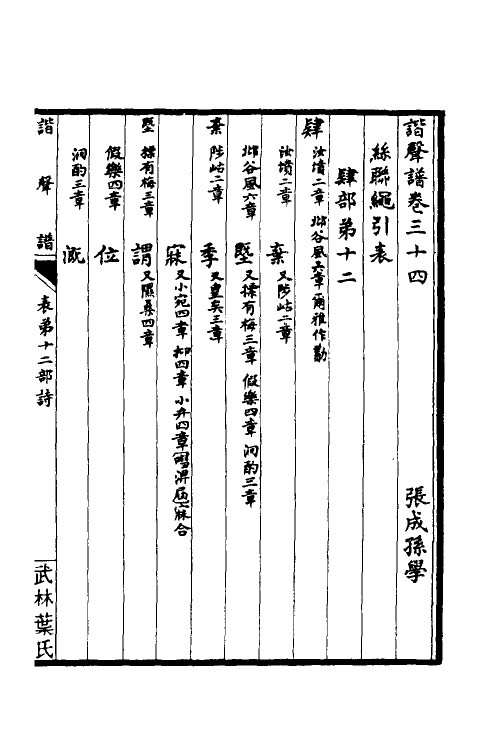 諧聲譜卷三十四　張成孫學
絲聯繩引表
肆部弟十二
肆 汝墳二章 邶谷風六章爾雅作勩
汝墳二章 棄 又陟岵二章
邶谷風六章 墍 又摽有梅三章 假樂四章 泂酌三章
棄 陟岵二章 季 又皇矣三章
寐 又小宛四章 抑四章 小弁四章嘒淠屆寐合
墍 摽有梅三章 謂 又隰桑四章
假樂四章 位
泂酌三章 溉
諧聲譜 表弟十二部詩 武林葉氏